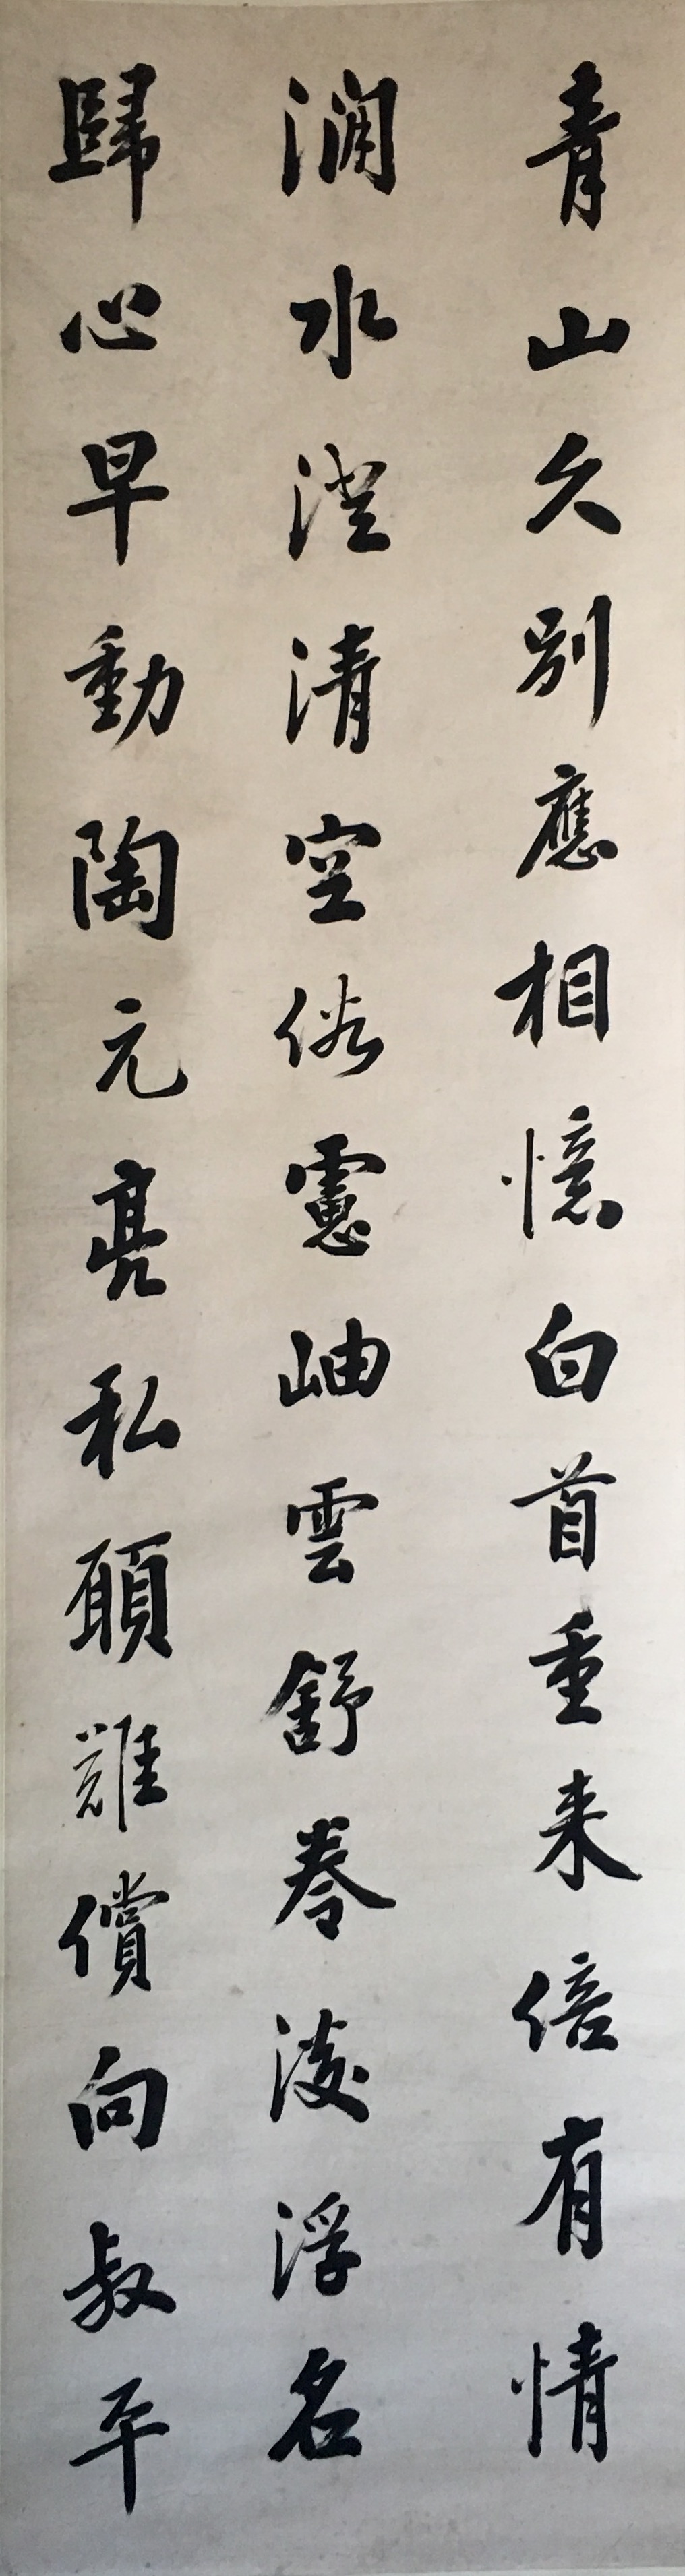 青山久别應相憶白首重来倍有情
澗水澄清空俗慮岫雲舒卷淡浮名
歸心早動陶元亮私願難償向叔平